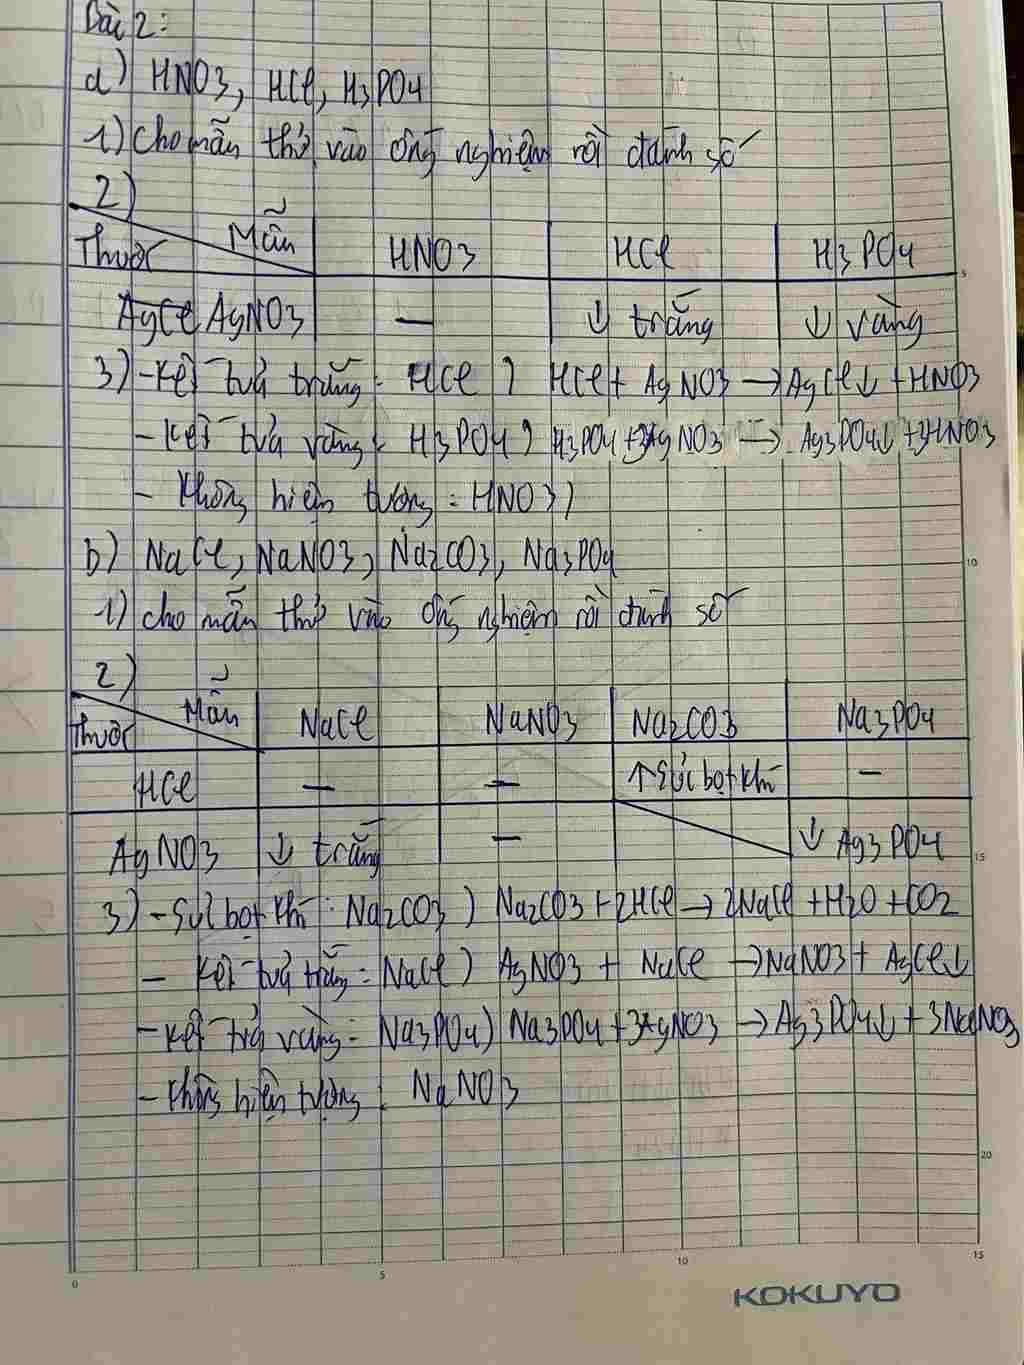 Bài 2:
a) HNO3, HCl, H3PO4
1) Cho mẫu thử vào ống nghiệm rồi đánh số
2)
Mẫu HNO3 HCl H3PO4
Thuốc
AgCl AgNO3 — ↓ trắng ↓ vàng
3) - Kết tủa trắng: HCl) HCl + AgNO3 → AgCl↓ + HNO3
- Kết tủa vàng: H3PO4) H3PO4 + 3AgNO3 → Ag3PO4↓ + 3HNO3
- Không hiện tượng: HNO3)
b) NaCl, NaNO3, Na2CO3, Na3PO4
10
1) cho mẫu thử vào ống nghiệm rồi đánh số
2)
Mẫu NaCl NaNO3 Na2CO3 Na3PO4
Thuốc
HCl — — ↑ Sủi bọt khí —
AgNO3 ↓ trắng — ↓ Ag3PO4
15
3) - Sủi bọt khí: Na2CO3) Na2CO3 + 2HCl → 2NaCl + H2O + CO2
- Kết tủa trắng: NaCl) AgNO3 + NaCl → NaNO3 + AgCl↓
- Kết tủa vàng: Na3PO4) Na3PO4 + 3AgNO3 → Ag3PO4↓ + 3NaNO3
- Không hiện tượng: NaNO3
20
0 5 10 15
KOKUYO